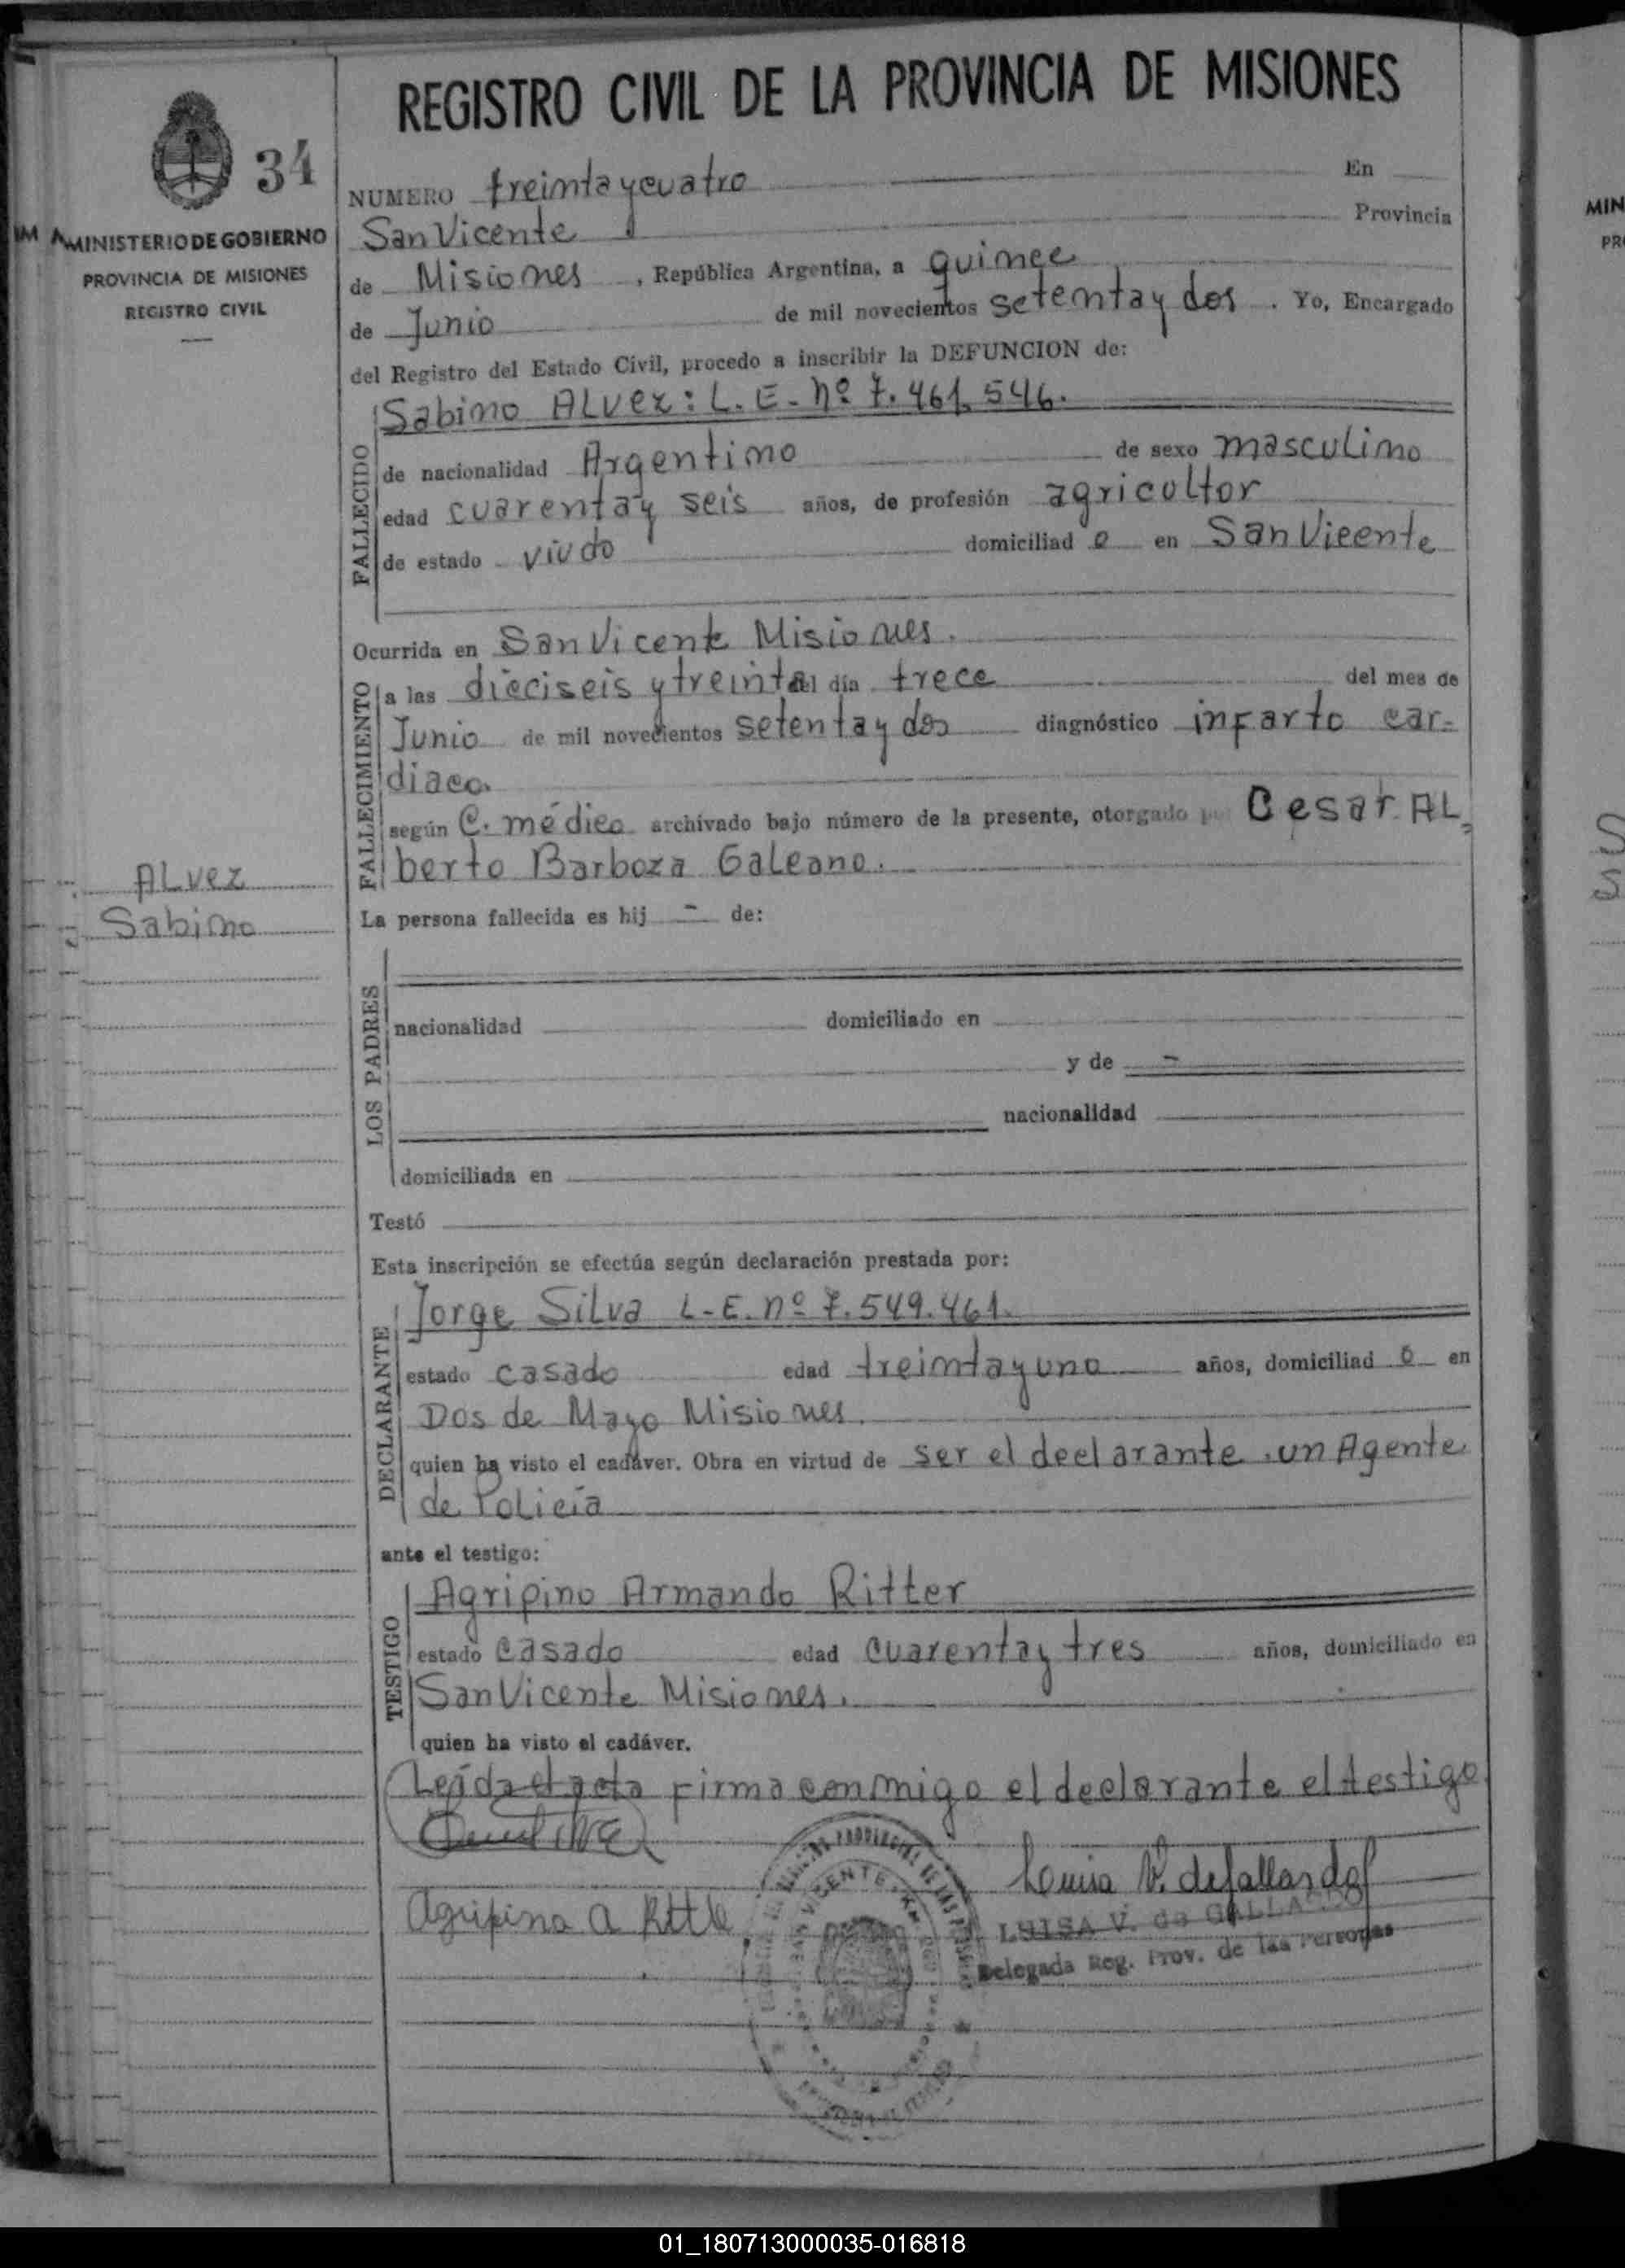 REGISTRO CIVIL DE LA PROVINCIA DE MISIONES
34
MINISTERIO DE GOBIERNO
PROVINCIA DE MISIONES
REGISTRO CIVIL
NUMERO treinta y cuatro En
San Vicente Provincia
de Misiones, República Argentina, a quince
de Junio de mil novecientos setenta y dos. Yo, Encargado
del Registro del Estado Civil, procedo a inscribir la DEFUNCION de:
FALLECIDO
Sabino ALvez: L. E. nº 7.461.546.
de nacionalidad Argentino de sexo masculino
edad cuarenta y seis años, de profesión agricultor
de estado viudo domiciliad o en San Vicente
Ocurrida en San Vicente Misiones.
FALLECIMIENTO
a las dieciseis y treinta del día trece del mes de
Junio de mil novecientos setenta y dos diagnóstico infarto car-
diaco.
según C. médico archivado bajo número de la presente, otorgado por Cesar AL-
berto Barboza Galeano.
ALvez
Sabino
La persona fallecida es hij - de:
LOS PADRES
nacionalidad domiciliado en
y de -
nacionalidad
domiciliada en
Testó
Esta inscripción se efectúa según declaración prestada por:
DECLARANTE
Jorge Silva L-E. nº 7.549.461.
estado casado edad treinta y uno años, domiciliad o en
Dos de Mayo Misiones.
quien ha visto el cadáver. Obra en virtud de ser el declarante un Agente
de Policía
ante el testigo:
TESTIGO
Agripino Armando Ritter
estado casado edad cuarenta y tres años, domiciliado en
San Vicente Misiones.
quien ha visto el cadáver.
Leída el acta firma conmigo el declarante el testigo.
Agripino A Ritte
Louisa V. de Gallardo
LUISA V. de GALLARDO
Delegada Reg. Prov. de las Personas
SAN VICENTE
MIN
PR
01_180713000035-016818